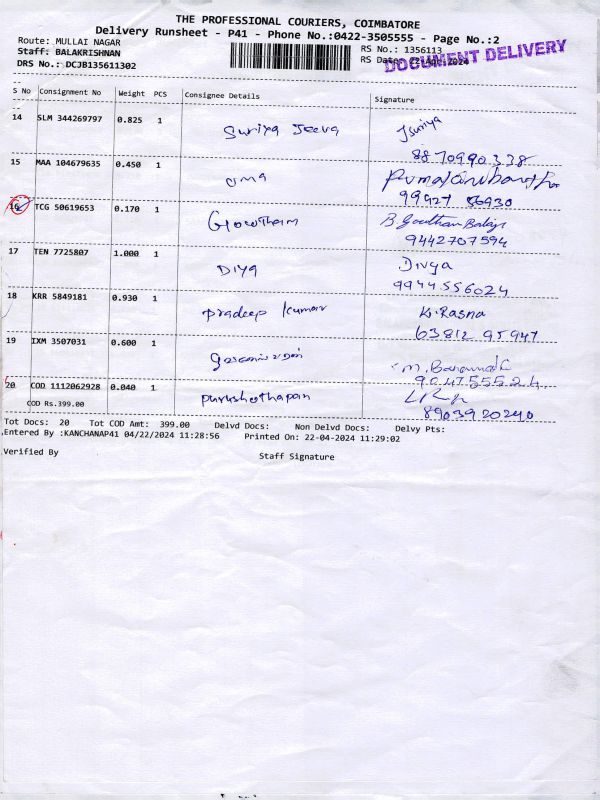 THE PROFESSIONAL COURIERS, COIMBATORE
Delivery Runsheet - P41 - Phone No.:0422-3505555 - Page No.:2
Route: MULLAI NAGAR
RS No.: 1356113
Staff: BALAKRISHNAN
RS Date: 22-Apr-2024
DOCUMENT DELIVERY
DRS No.: DCJB135611302
S No Consignment No Weight PCS Consignee Details Signature
14 SLM 344269797 0.825 1 Suriya Jeeva Jsuriya
8870990338
15 MAA 104679635 0.450 1 Uma
99927 86930
16 TCG 50619653 0.170 1 Gowtham B. Goutham Balaji
9442707594
17 TEN 7725807 1.000 1 Diya Divya
9944556024
18 KRR 5849181 0.930 1 pradeep kumar K. Rasna
63812 95947
19 IXM 3507031 0.600 1
20 COD 1112062928 0.040 1 purushothapan
COD Rs.399.00
8903920240
Tot Docs: 20 Tot COD Amt: 399.00 Delvd Docs: Non Delvd Docs: Delvy Pts:
Entered By :KANCHANAP41 04/22/2024 11:28:56 Printed On: 22-04-2024 11:29:02
Verified By Staff Signature